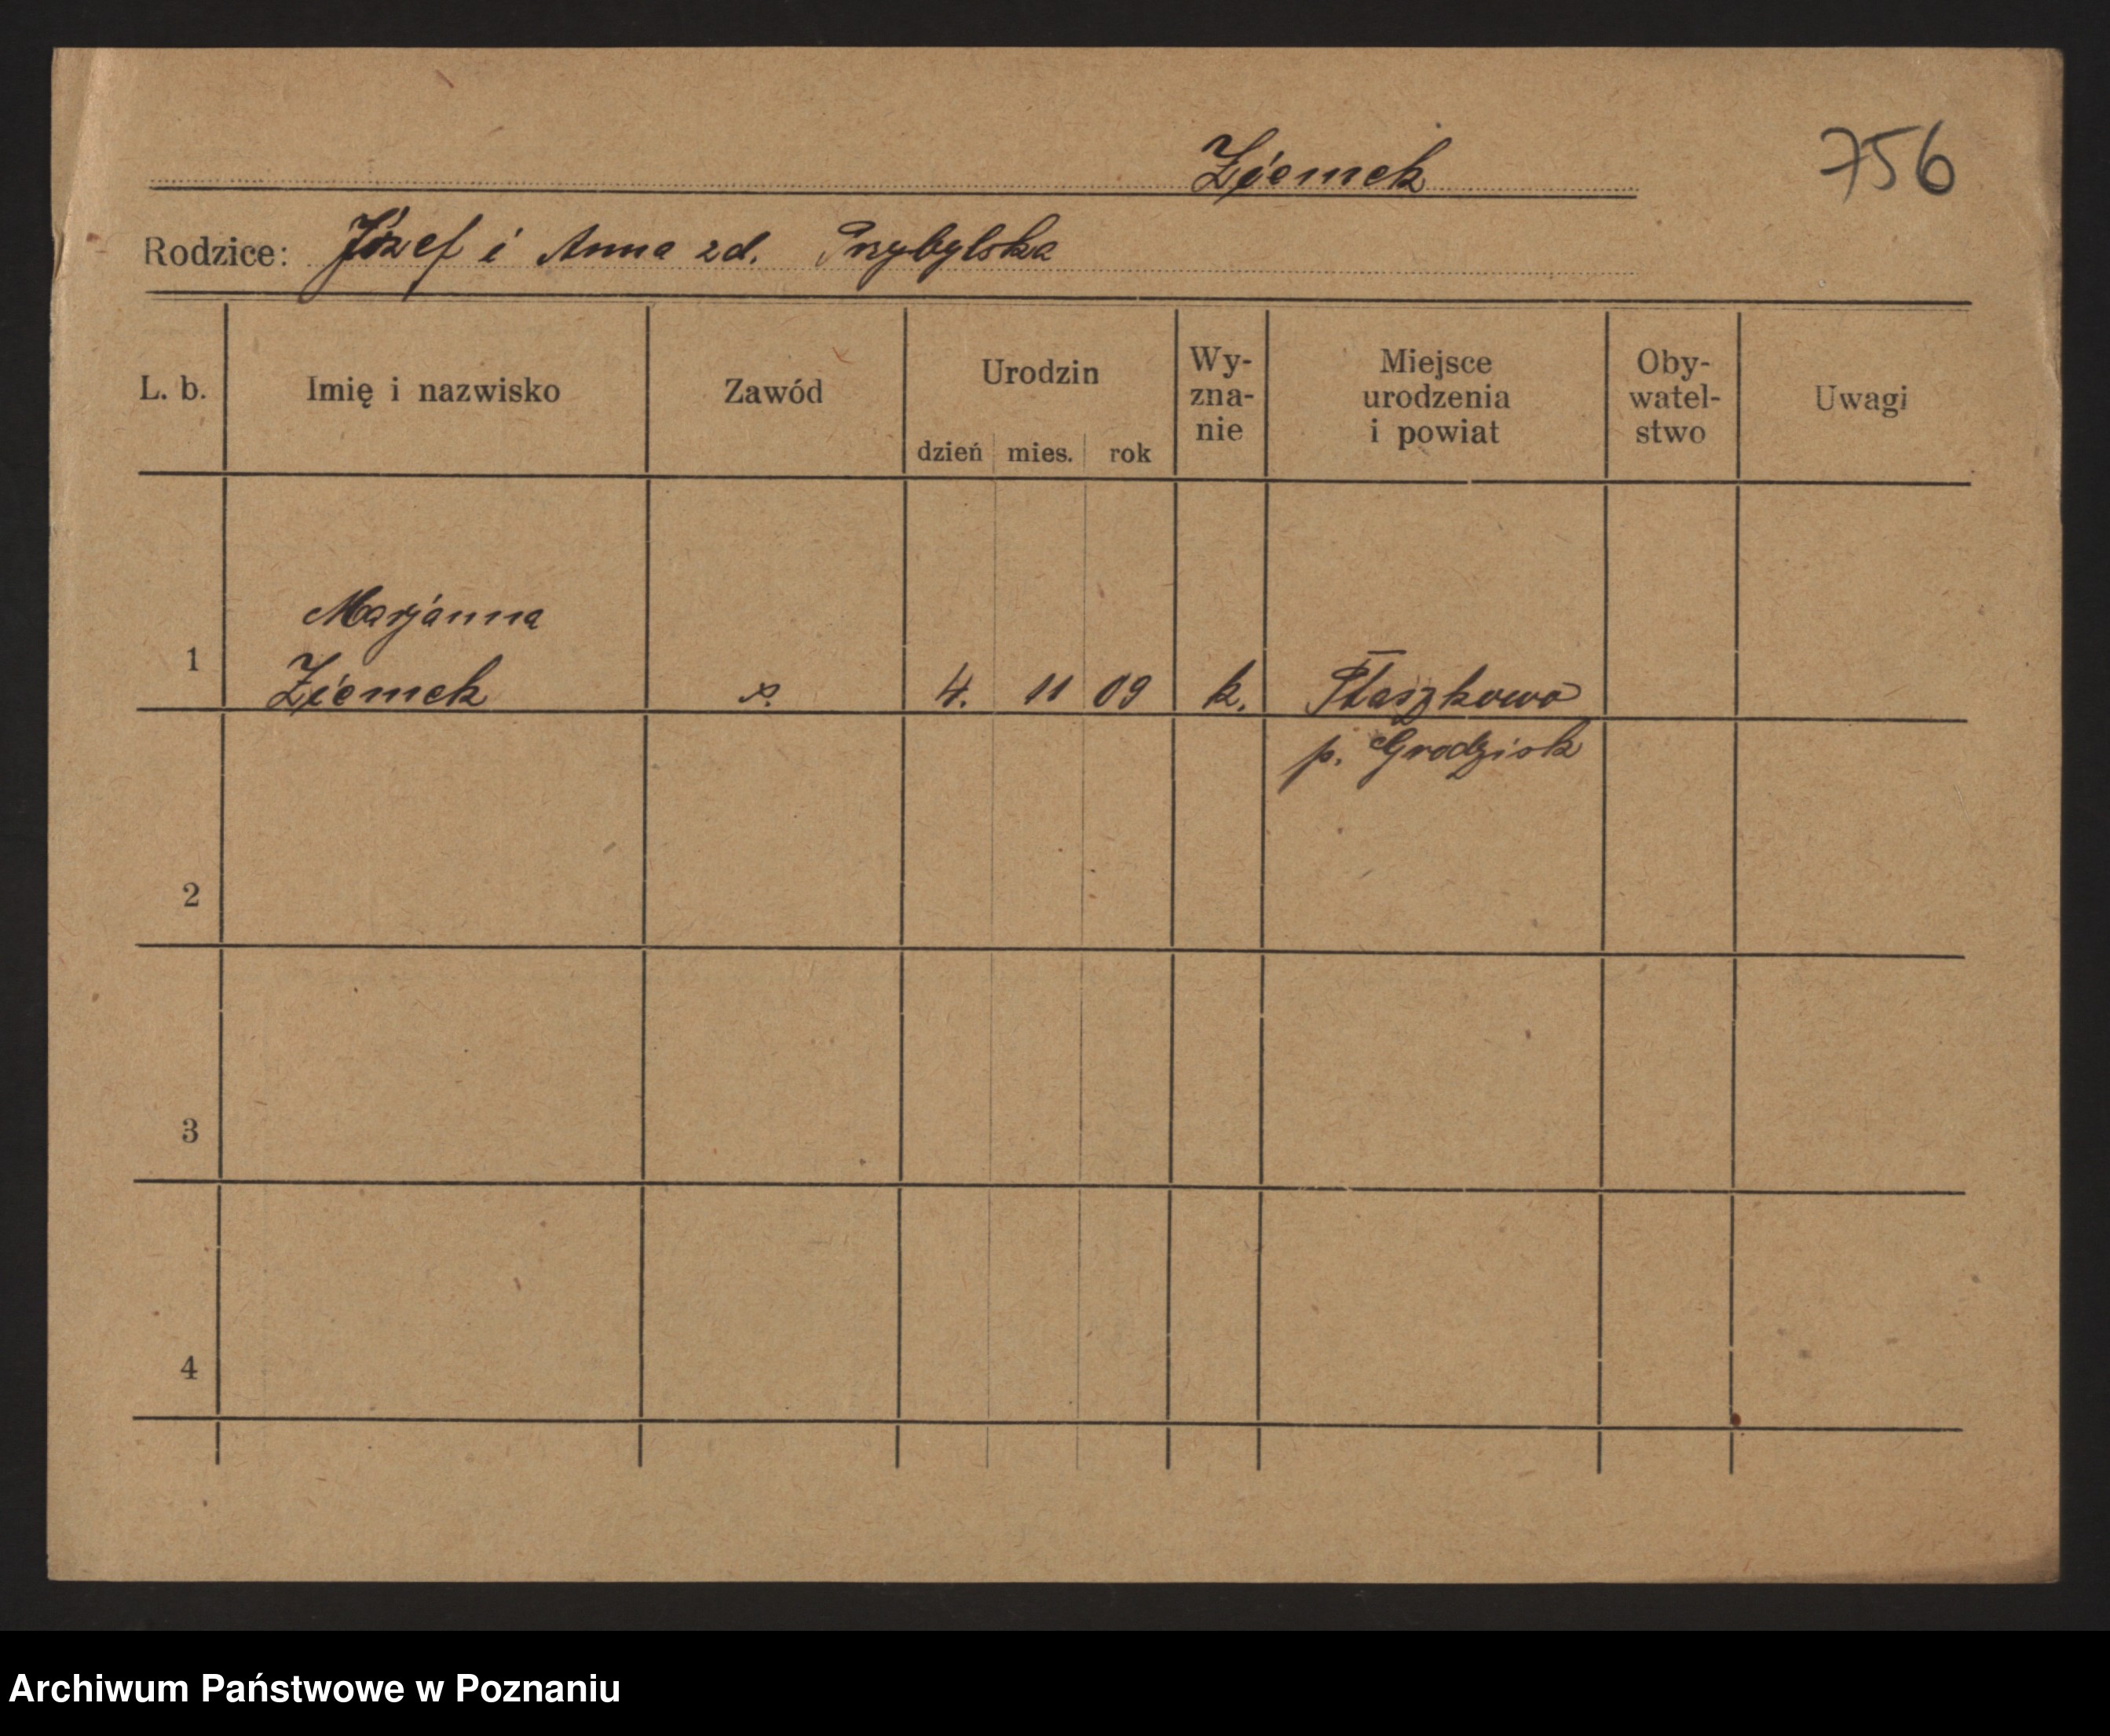 Ziemek
756
Rodzice: Józef i Anna zd. Przybylska
L. b.
Imię i nazwisko
Zawód
Urodzin
dzień mies. rok
Wy-
zna-
nie
Miejsce
urodzenia
i powiat
Oby-
watel-
stwo
Uwagi
Marjanna
1 Ziemek 4. 11 09 k. Ptaszkowo
p. Grodzisk
2
3
4
Archiwum Państwowe w Poznaniu